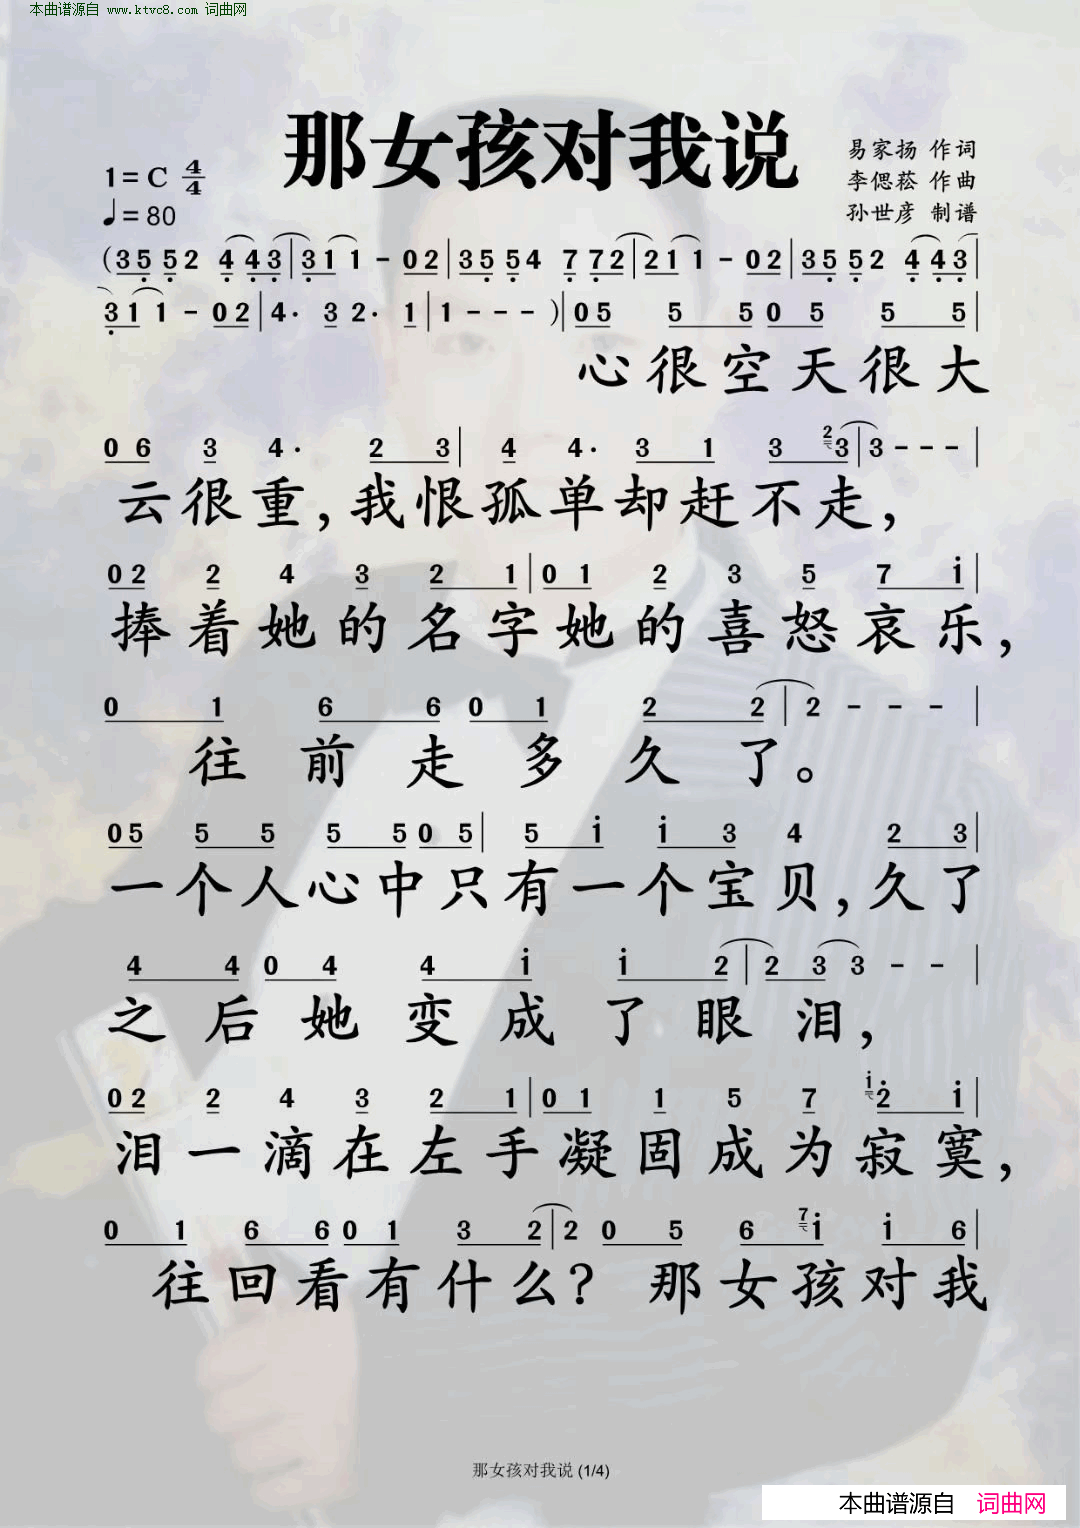 本曲谱源自 www.ktvc8.com 词曲网
那女孩对我说
易家扬 作词
1=C 4/4
李偲菘 作曲
♩=80
孙世彦 制谱
(35 52 4 43|31 1 - 02|35 54 7 72|21 1 - 02|35 52 4 43|
31 1 - 02|4· 3 2· 1|1 - - -)|05 5 5 0 5 5 5|
心很空天很大
06 3 4· 2 3|4 4· 3 1 3 23|3 - - -|
云很重,我恨孤单却赶不走,
02 2 4 3 2 1|0 1 2 3 5 7 i|
捧着她的名字她的喜怒哀乐,
0 1 6 6 0 1 2 2|2 - - -|
往前走多久了。
05 5 5 5 5 0 5|5 i i 3 4 2 3|
一个人心中只有一个宝贝,久了
4 4 0 4 4 i i 2|2 3 3 - -|
之后她变成了眼泪,
02 2 4 3 2 1|0 1 1 5 7 i2 i|
泪一滴在左手凝固成为寂寞,
0 1 6 6 0 1 3 2|2 0 5 6 7i i 6|
往回看有什么?那女孩对我
那女孩对我说 (1/4)
本曲谱源自 词曲网